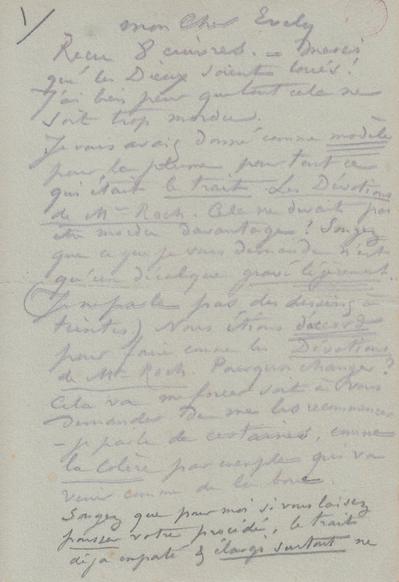 mon Cher Evely
Reçu 8 cuivres. – Merci
que les Dieux soient loués!
J'ai bien peur que tout cela ne
soit trop mordu.
Je vous avais donné comme modèle
pour la plume pour tout ce
qui était le trait Les Dévotions
de Mme Roch. Cela ne devait pas
être mordu davantage! Songez
que ce que je vous demande n'est
qu'un décalque gravé légèrement.
(Je ne parle pas des dessins à
teintes) Nous étions d'accord
pour faire comme les Dévotions
de Mme Roch. Pourquoi changer?
Cela va me forcer soit à vous
demander de me les recommencer
– je parle de certaines, comme
la Colère par exemple qui va
venir comme de la boue.
Songez que pour moi si vous laissez
pousser votre procédé, le trait
déjà empaté & élargi surtout ne